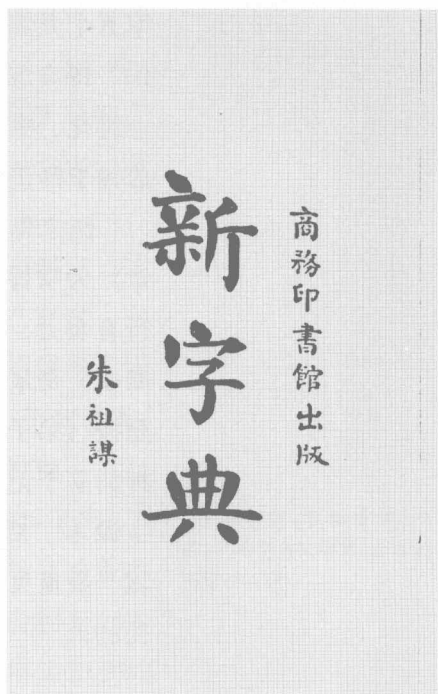 商務印書館出版
新字典
朱祖謀